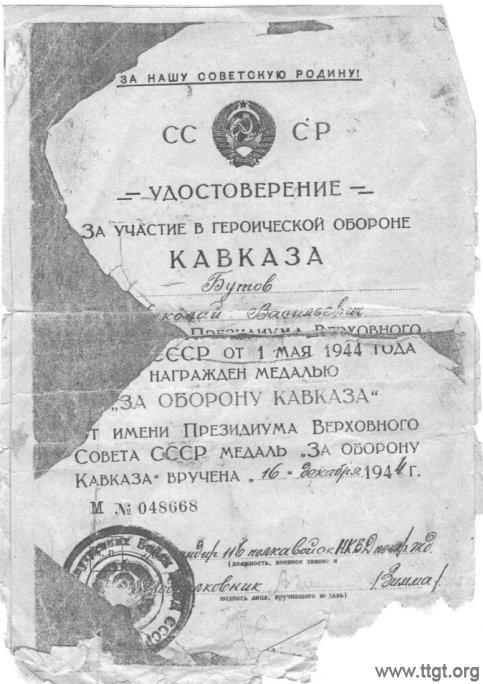 ЗА НАШУ СОВЕТСКУЮ РОДИНУ!
СС СР
— УДОСТОВЕРЕНИЕ —
ЗА УЧАСТИЕ В ГЕРОИЧЕСКОЙ ОБОРОНЕ
КАВКАЗА
Бутов
иколай Васильевич
ПРЕЗИДИУМА ВЕРХОВНОГО
СССР ОТ 1 МАЯ 1944 ГОДА
НАГРАЖДЕН МЕДАЛЬЮ
„ЗА ОБОРОНУ КАВКАЗА“
ОТ ИМЕНИ ПРЕЗИДИУМА ВЕРХОВНОГО
СОВЕТА СССР МЕДАЛЬ „ЗА ОБОРОНУ
КАВКАЗА“ ВРУЧЕНА „16“ декабря 1944 г.
М № 048668
андир 116 полка войск НКВД по охр. жд.
(должность, военное звание и
олковник (Зимма)
подпись лица, вручившего медаль)
Войск
СССР
www.ttgt.org